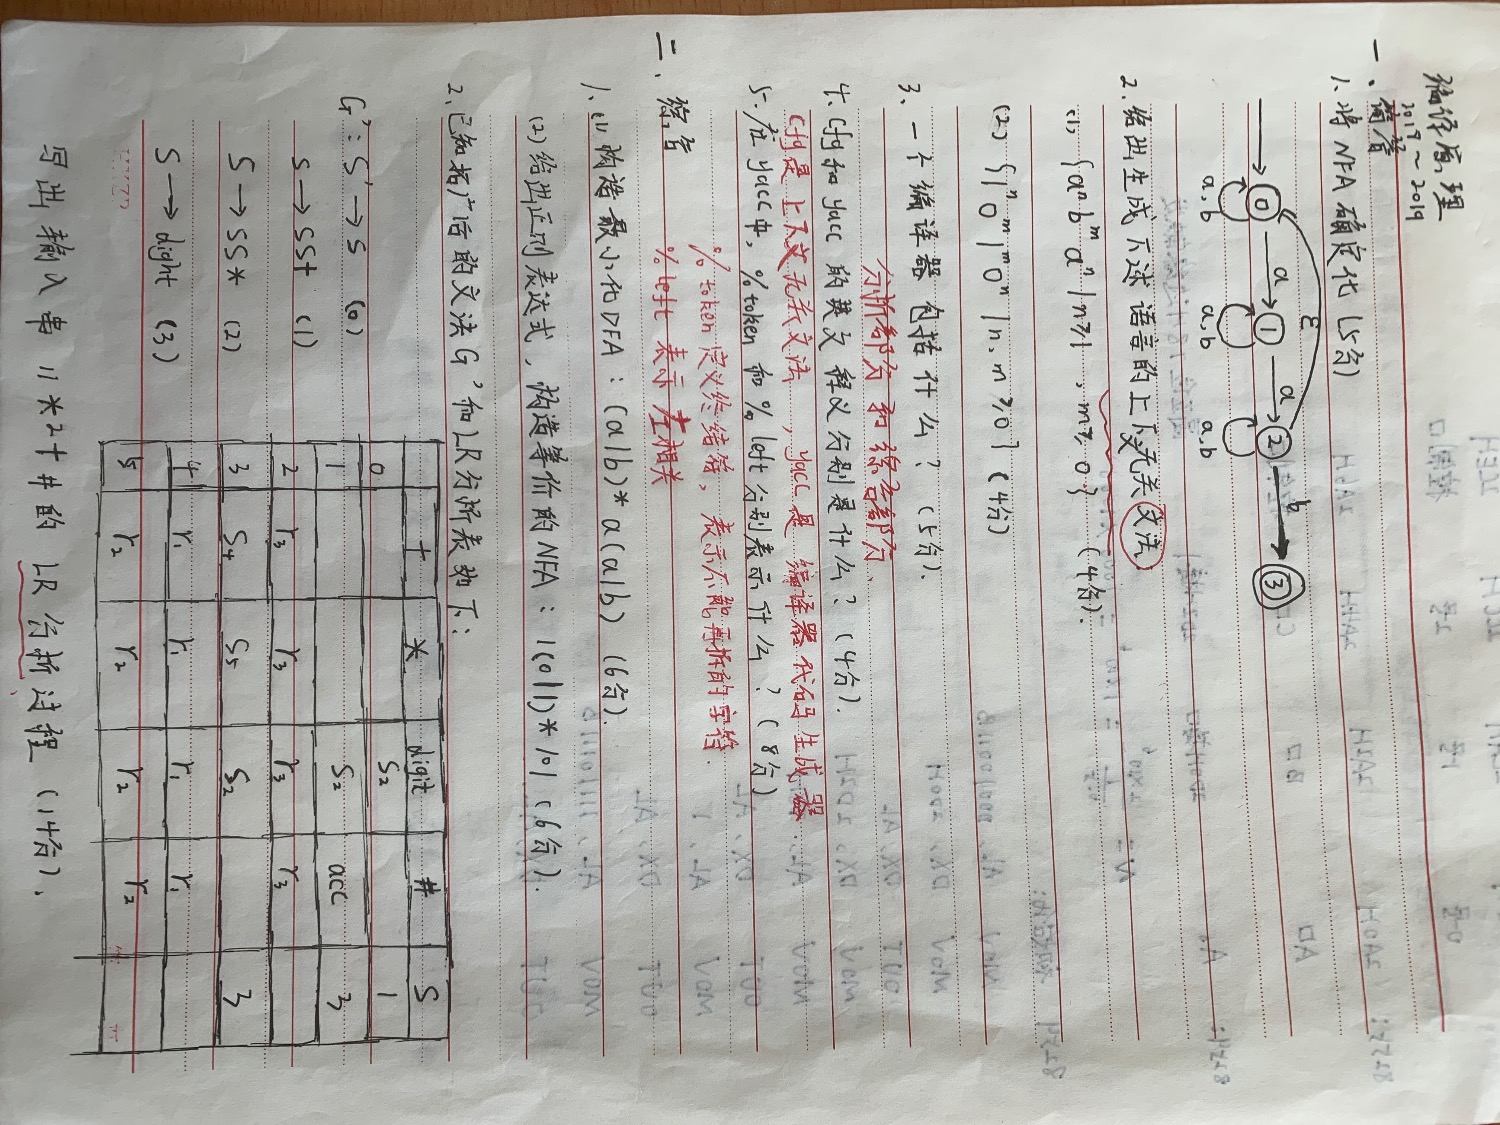 编译原理
2019～2019
一、简答
1、将NFA确定化（5分）
ε
0 a 1 a 2 b 3
a,b a,b a,b
2.给出生成下述语言的上下文无关文法
(1) {aⁿbᵐaⁿ|n≥1,m≥0}（4分）.
(2) {1ⁿ0ᵐ1ᵐ0ⁿ|n,m≥0}（4分）
3、一个编译器包括什么？（5分）.
分析部分和综合部分.
4.cfg和yacc的英文释义分别是什么？（4分）.
cfg是上下文无关文法，yacc是编译器代码生成器.
5.在yacc中，%token和%left分别表示什么？（8分）
%token定义终结符，表示不能再拆的字符.
%left表示左相关
二、综合
1、(1)构造最小化DFA：(a|b)*a(a|b)（6分）.
(2)给出正则表达式，构造等价的NFA：1(0|1)*101（6分）.
2、已知拓广后的文法G'和LR分析表如下：
G'：S'→S (0)
S→SS+ (1)
S→SS* (2)
S→dight (3)
+ * digit # S
0 S₂ 1
1 S₂ acc 3
2 r₃ r₃ r₃ r₃
3 S₄ S₅ S₂ 3
4 r₁ r₁ r₁ r₁
5 r₂ r₂ r₂ r₂
写出输入串11*2+#的LR分析过程（14分）.